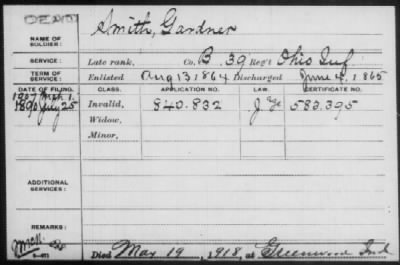 DEAD
NAME OF SOLDIER: Smith, Gardner
SERVICE: Late rank, Co. B. 39 Reg't Ohio Inf
TERM OF SERVICE: Enlisted Aug 13 1864 Discharged June 4, 1865
DATE OF FILING. CLASS. APPLICATION NO. LAW. CERTIFICATE NO.
1907 Mch 1.
1890 July 25 Invalid, 840.832 583.395
Widow,
Minor,
ADDITIONAL SERVICES:
REMARKS:
Died May 19, 1918, at Greenwood Ind